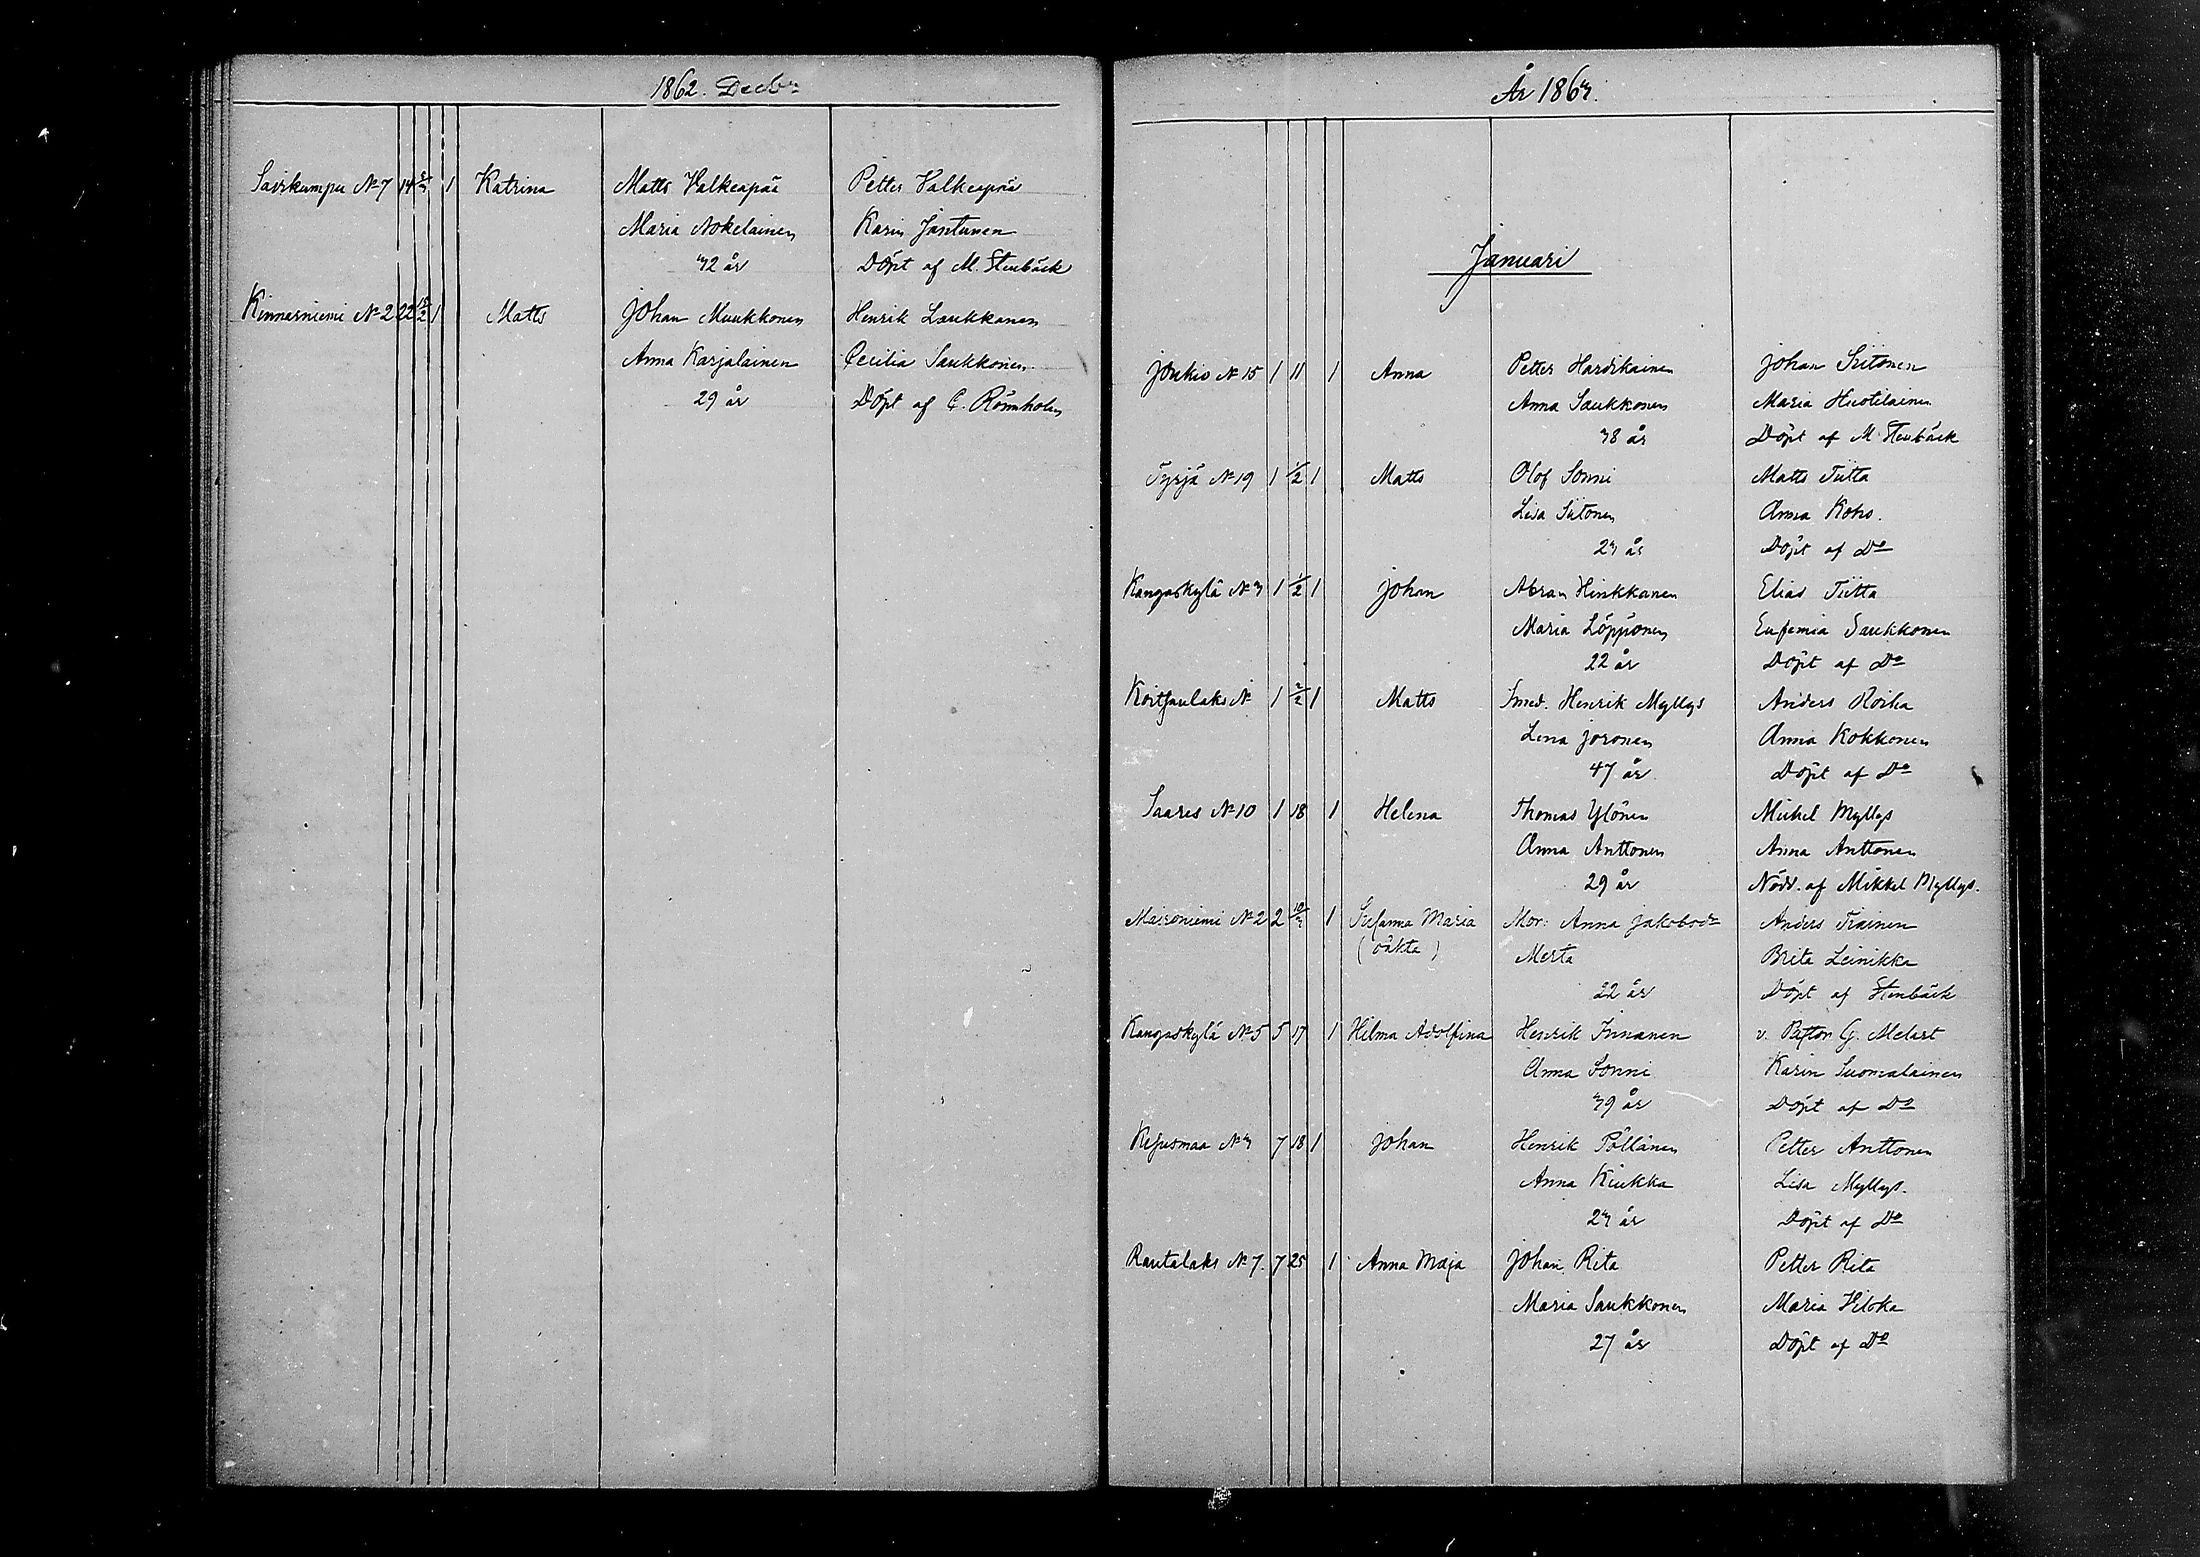 1862. Decbr
Savikumpu No 7 14 2/3 1 Katrina Matts Valkeapää Petter Valkeapää
Maria Nokelainen Karin Jantunen
32 år Döpt af M. Stenbäck
Kinnarniemi No 2 22 12/2 1 Matts Johan Muukkonen Henrik Laukkanen
Anna Karjalainen Cecilia Saukkonen
29 år Döpt af C. Römholm
År 1863.
Januari
Joukio No 15 1 11 1 Anna Petter Hardikainen Johan Siitonen
Anna Saukkonen Maria Huotilainen
38 år Döpt af M Stenbäck
Tyrjä No 19 1 1/2 1 Matts Olof Sonni Matts Tiitta
Lisa Siitonen Anna Koho.
23 år Döpt af Do
Kangaskylä No 3 1 1/2 1 Johan Abram Hinkkanen Elias Tiitta
Maria Löppönen Eufemia Saukkonen
22 år Döpt af Do
No 1 2/2 1 Matts Smed. Henrik Myllys Anders Roiha
Lena Joronen Anna Kokkonen
47 år Döpt af Do
Saares No 10 1 18 1 Helena Thomas Ylönen Mickel Myllys
Anna Anttonen Anna Anttonen
29 år Nödd. af Mikkel Myllys.
No 2 2 10/3 1 Susanna Maria Mor: Anna Jakobsdr Anders Träinen
(oäkta) Merta Brita Leinikka
22 år Döpt af Stenbäck
Kangaskylä No 5 5 17 1 Hilma Adolfina Henrik Innanen v. Pastor G. Melart
Anna Sonni Karin Suomalainen
39 år Döpt af Do
No 3 7 18 1 Johan Henrik Pöllänen Petter Anttonen
Anna Kiukka Lisa Myllys.
23 år Döpt af Do
Rautalaks No 7. 7 25 1 Anna Maja Johan Rita Petter Rita
Maria Saukkonen Maria Vilska
27 år Döpt af Do